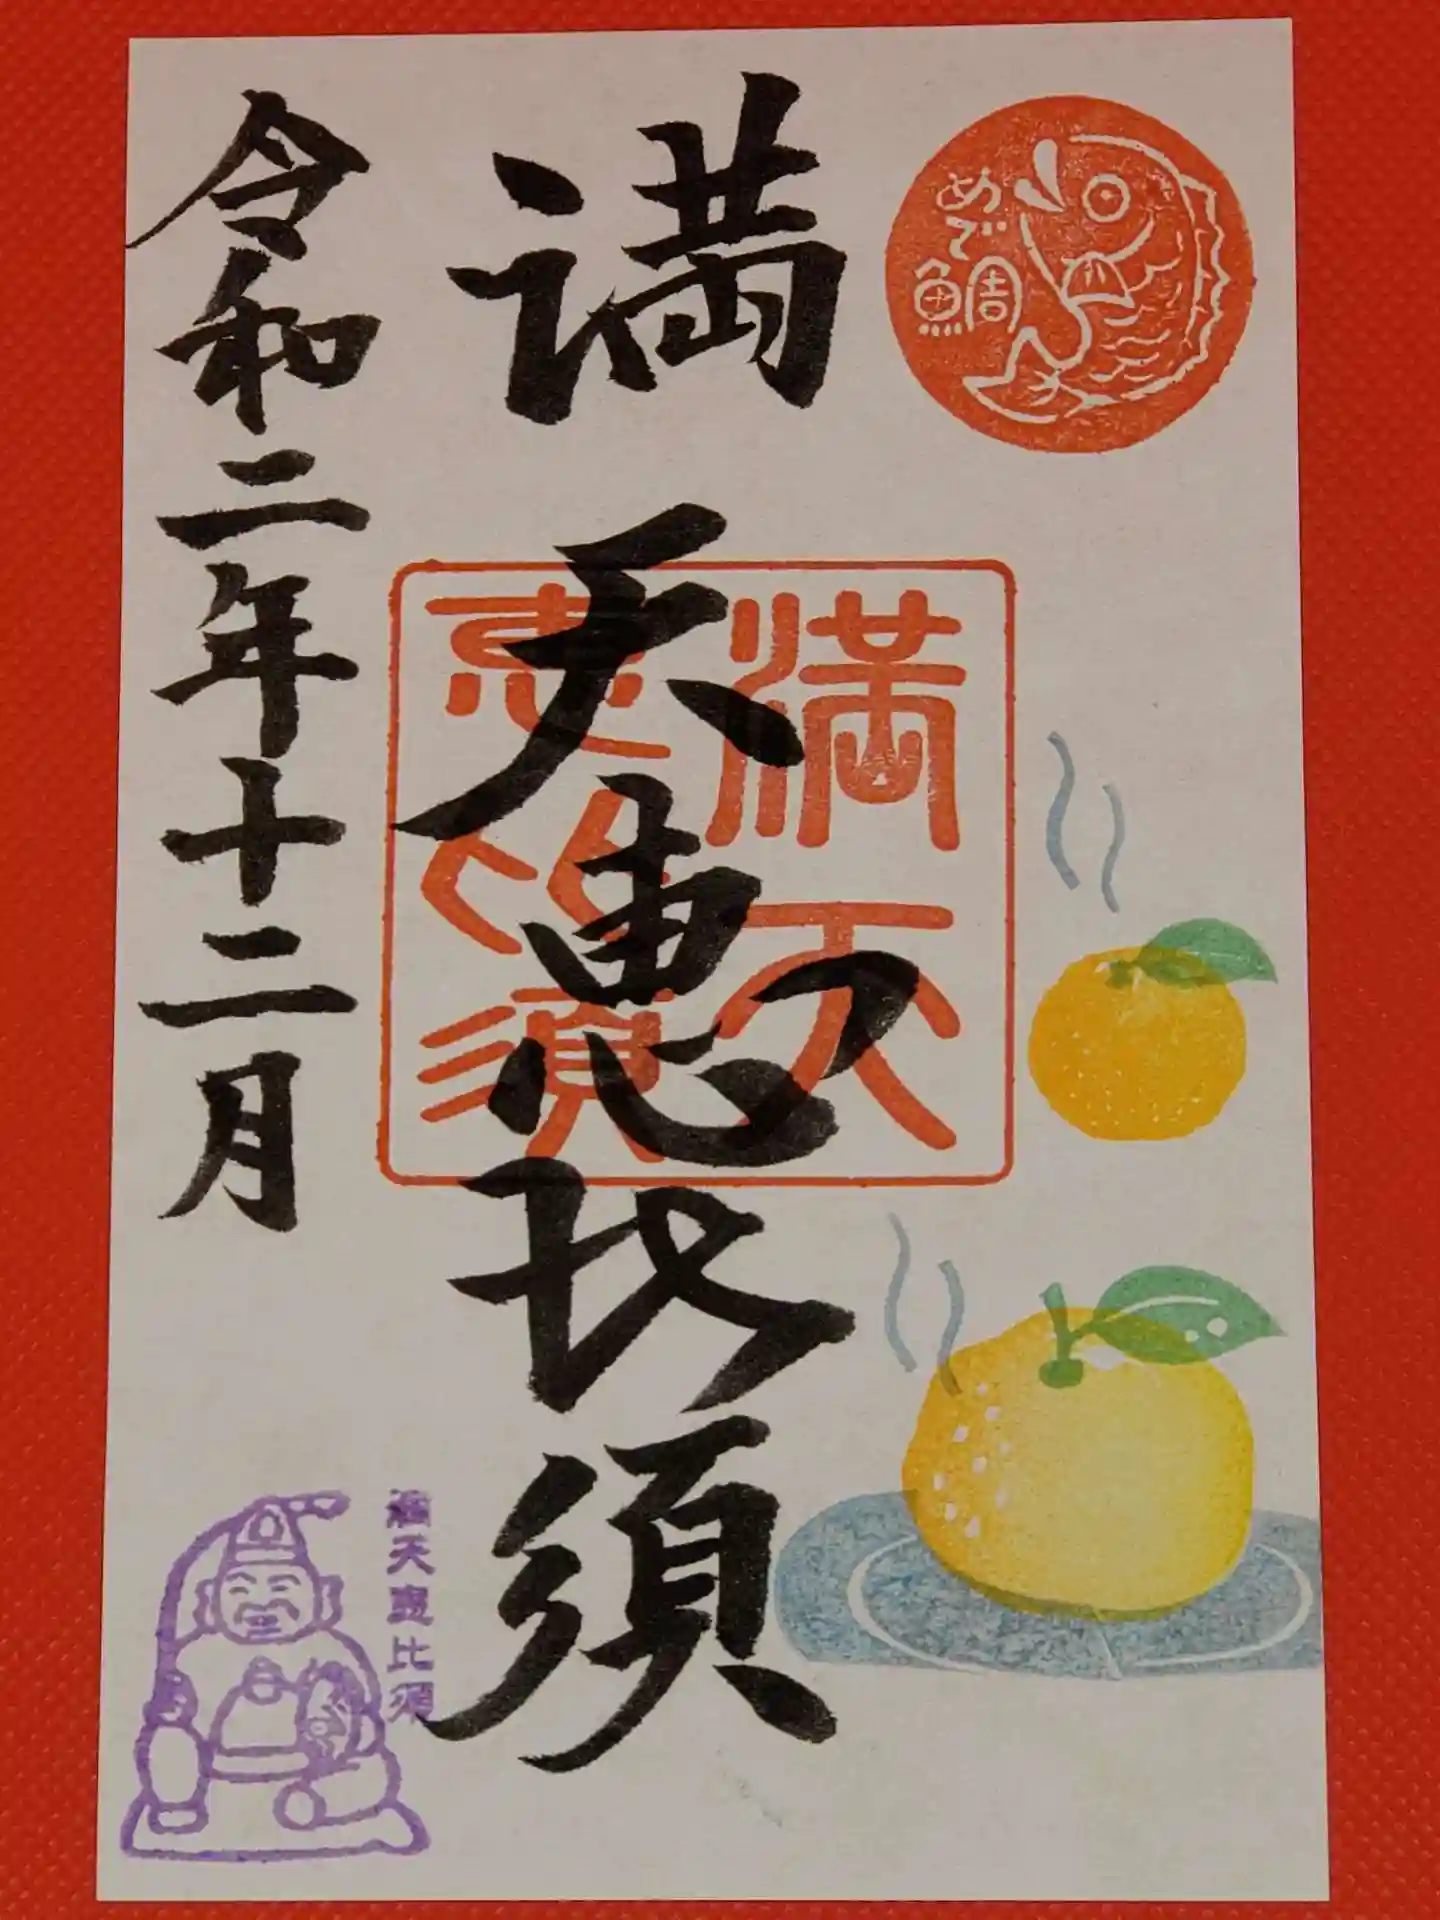 めで
鯛
満天恵比須
満天
恵比須
令和二年十二月
満天恵比須